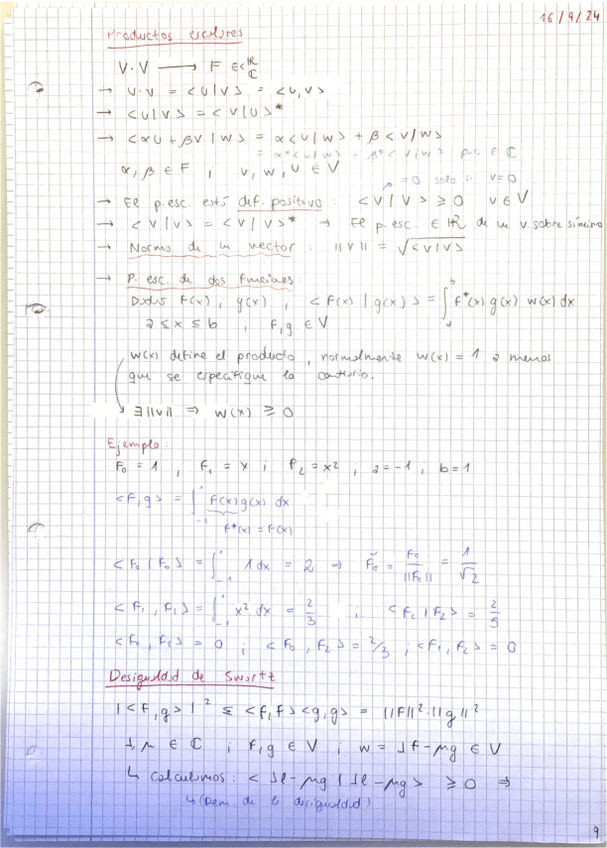 16/9/24
Productos escalares
V·V ⟶ F ∈ <ℝ ℂ
→ U·V = <U|V> = <U,V>
→ <U|V> = <V|U>*
→ <αU + βV|W> = α<U|W> + β<V|W>
= α*<U|W> + β*<V|W> ℂ
α, β ∈ F ; V, W, U ∈ V
= 0 solo si V=0
→ El p.esc. está def. positivo : <V|V> ≥ 0 V ∈ V
→ <V|V> = <V|V>* → El p.esc. ∈ ℝ de un v. sobre sí mismo
→ Norma de un vector : ||V|| = √<V|V>
→ P. esc. de dos funciones
Dadas f(x) ; g(x) , <f(x)|g(x)> = ∫ₐᵇ f*(x) g(x) w(x) dx
a ≤ x ≤ b , f, g ∈ V
w(x) define el producto, normalmente w(x) = 1 a menos
que se especifique lo contrario.
∃ ||V|| ⇒ w(x) ≥ 0
Ejemplo:
F₀ = 1 , F₁ = x ; F₂ = x² , a = -1 ; b = 1
<F,g> = ∫₋₁¹ F(x) g(x) dx
F*(x) = F(x)
<F₀|F₀> = ∫₋₁¹ 1 dx = 2 → F̌₀ = F₀/||F₀|| = 1/√2
<F₁,F₁> = ∫₋₁¹ x² dx = 2/3 ; <F₂|F₂> = 2/5
<F₀,F₁> = 0 ; <F₀,F₂> = 2/3 ; <F₁,F₂> = 0
Desigualdad de Swartz
|<F,g>|² ≤ <f,f><g,g> = ||F||²·||g||²
λ, μ ∈ ℂ ; f, g ∈ V ; w = λf - μg ∈ V
↳ Calculamos : <λf - μg | λf - μg> ≥ 0 ⇒
↳ (Dem. de la desigualdad)
9